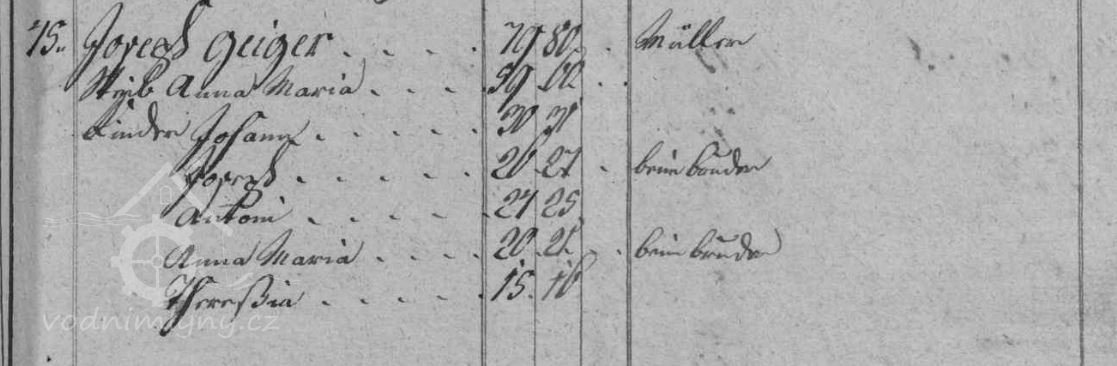 75. Joseph Geiger . . . . . 79 80 . Müller
Weib Anna Maria . . . . 59 60 . .
Kinder Johann . . . . . 30 31
Joseph . . . . . 26 27 . beim bruder
Antoni . . . . . 24 25
Anna Maria . . . . 20 21 . . beim bruder
Thereßia . . . . . 15 16
vodnimlyny.cz